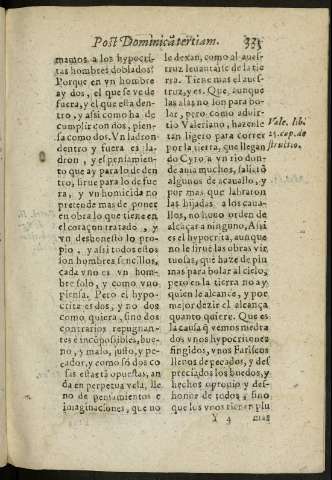 Post Dominicā tertiam. 335
mamos a los hypocri-
tas hombres doblados?
Porque en vn hombre
ay dos, el que se ve de
fuera, y el que está den-
tro, y assi como ha de
cumplir con dos, pien-
sa como dos. Vn ladron
dentro y fuera es la-
dron, y el pensamien-
to que ay para lo de den
tro, sirue para lo de fue
ra, y vn homicida no
pretende mas de poner
en obra lo que tiene en
el coraçon tratado, y
vn deshonesto lo pro-
pio, y assi todos estos
son hombres sencillos,
cada vno es vn hom-
bre solo, y como vno
piensa. Pero el hypo-
crita es dos, y no dos
como quiera, sino dos
contrarios repugnan-
tes e incōpossibles, bue-
no, y malo, justo, y pe-
cador, y como só dos co
sas estarā opuestas, an
da en perpetua vela, lle
no de pensamientos e
imaginaciones, que no
le dexan, como al aues-
truz leuantarse de la tie
rra. Tiene mas el aues-
truz, y es. Que, aunque
las alas no son para bo-
lar, pero como aduir-
tio Valeriano, hazenle
tan ligero para correr
por la tierra, que llegan
do Cyro a vn rio don-
de auia muchos,
algunos de acauallo, y
por mas que labraton
las hijadas a los caua-
llos, no houo orden de
alcaçar a ninguno. Assi
es el hypocrita, aunque
no le sirue las obras vir
tuosas, que haze de plu
mas para bolar al cielo,
pero en la tierra no ay
quien le alcance, y por
mejor dezir el alcança
quanto quiere. Que es
la causa q̃ vemos medra
dos vnos hypocritones
fingidos, vnos Fariseos
llenos de pecados, y des
preciados los buedos, y
hechos oprouio y des-
honor de todos, sino
que los vnos tienen plu
Vale. lib.
25. cap. de
struitio.
Y 4 mas